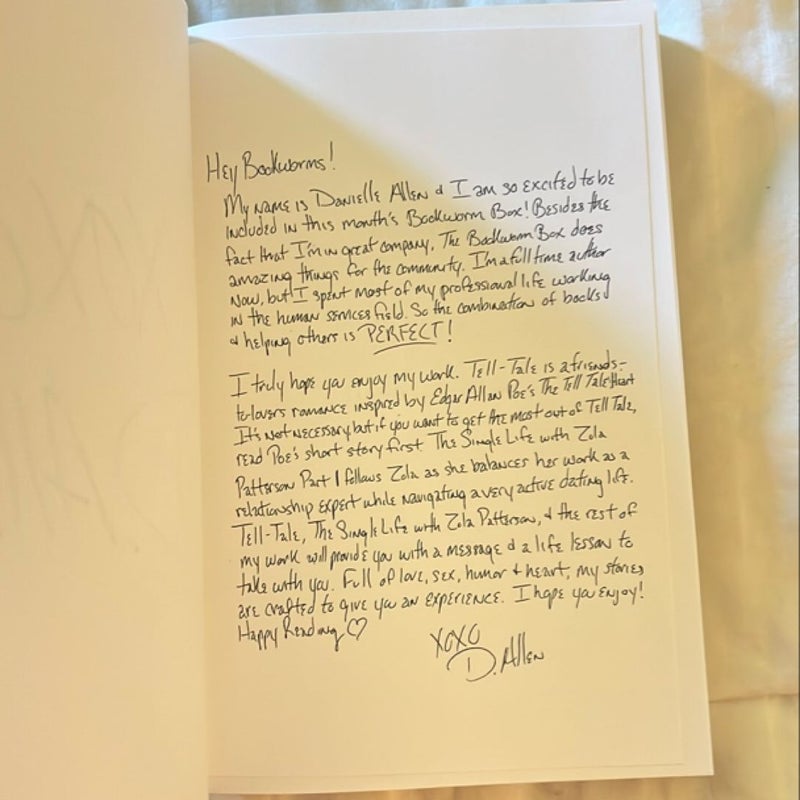 Hey Bookworms!
My name is Danielle Allen & I am so excited to be
included in this month's Bookworm Box! Besides the
fact that I'm in great company, The Bookworm Box does
amazing things for the community. I'm a full time author
now, but I spent most of my professional life working
in the human services field. So the combination of books
& helping others is PERFECT!
I truly hope you enjoy my work. Tell-Tale is a friends-
to-lovers romance inspired by Edgar Allan Poe's The Tell Tale Heart
It's not necessary but if you want to get the most out of Tell Tale,
read Poe's short story first. The Single Life with Zola
Patterson Part 1 follows Zola as she balances her work as a
relationship expert while navigating a very active dating life.
Tell-Tale, The Single Life with Zola Patterson, & the rest of
my work will provide you with a message & a life lesson to
take with you. Full of love, sex, humor & heart, my stories
are crafted to give you an experience. I hope you enjoy!
Happy Reading ♡
XOXO
D. Allen